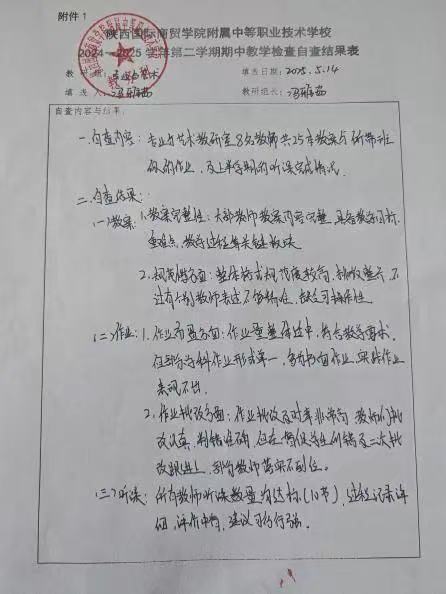 附件 1
陕西国际商贸学院附属中等职业技术学校
2024—2025学年第二学期期中教学检查自查结果表
教研组: 专业与艺术 填表日期: 2025.5.14
填表人: 冯 教研组长: 冯
自查内容与结果:
一、自查内容: 专业与艺术教研室8名教师共25本教案与所带班
级的作业、及上半学期的听课完成情况。
二、自查结果:
(一)教案: 1、教案完整性: 大部教师教案内容完整, 具备教学目标、
重难点、教学过程等关键板块
2、规范性方面: 整体格式规范度较高, 排版整齐, 不
过有个别教师表述不够精准, 缺乏可操作性。
(二)作业: 1. 作业布置方面: 作业量整体适中, 符合教学要求,
但部分学科作业形式单一, 多为书面作业, 实践作业
表现不出.
2、作业批改方面: 作业批改及时率非常高, 教师们批
改认真, 判错准确, 但在督促学生纠错及二次批
改跟进上, 部分教师落实不到位。
(三)听课: 所有教师听课数量均达标(10节), 过程记录详
细, 评价中肯, 建议可行行强。